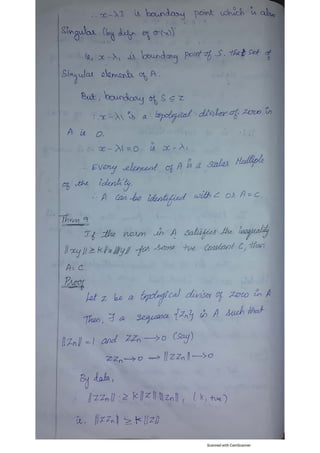 ∴ x-λI is boundary point which is also
Singular (by defn of σ(x))
ie, x-λ, is boundary point of S. the set of
Singular elements of A.
But, boundary of S ⊆ Z
∴ x-λ1 is a topological divisor of zero in
A is 0.
∴ x-λ1=0 ie x=λ1
∴ Every element of A is a scalar Multiple
of the identity.
∴ A can be identified with C or A=C.
Thm 9
If the norm in A satisfies the inequality
||xy|| ≥ k||x||||y|| for some +ve constant C, then
A=C
Proof
Let z be a topological divisor of zero in A
Then, ∃ a sequence {Zn} in A such that
||Zn|| = 1 and ZZn → 0 (say)
ZZn → 0 ⇒ ||ZZn|| → 0
By data,
||ZZn|| ≥ k ||Z|| ||Zn||, (k, +ve)
ie. ||ZZn|| ≥ k ||Z||
Scanned with CamScanner